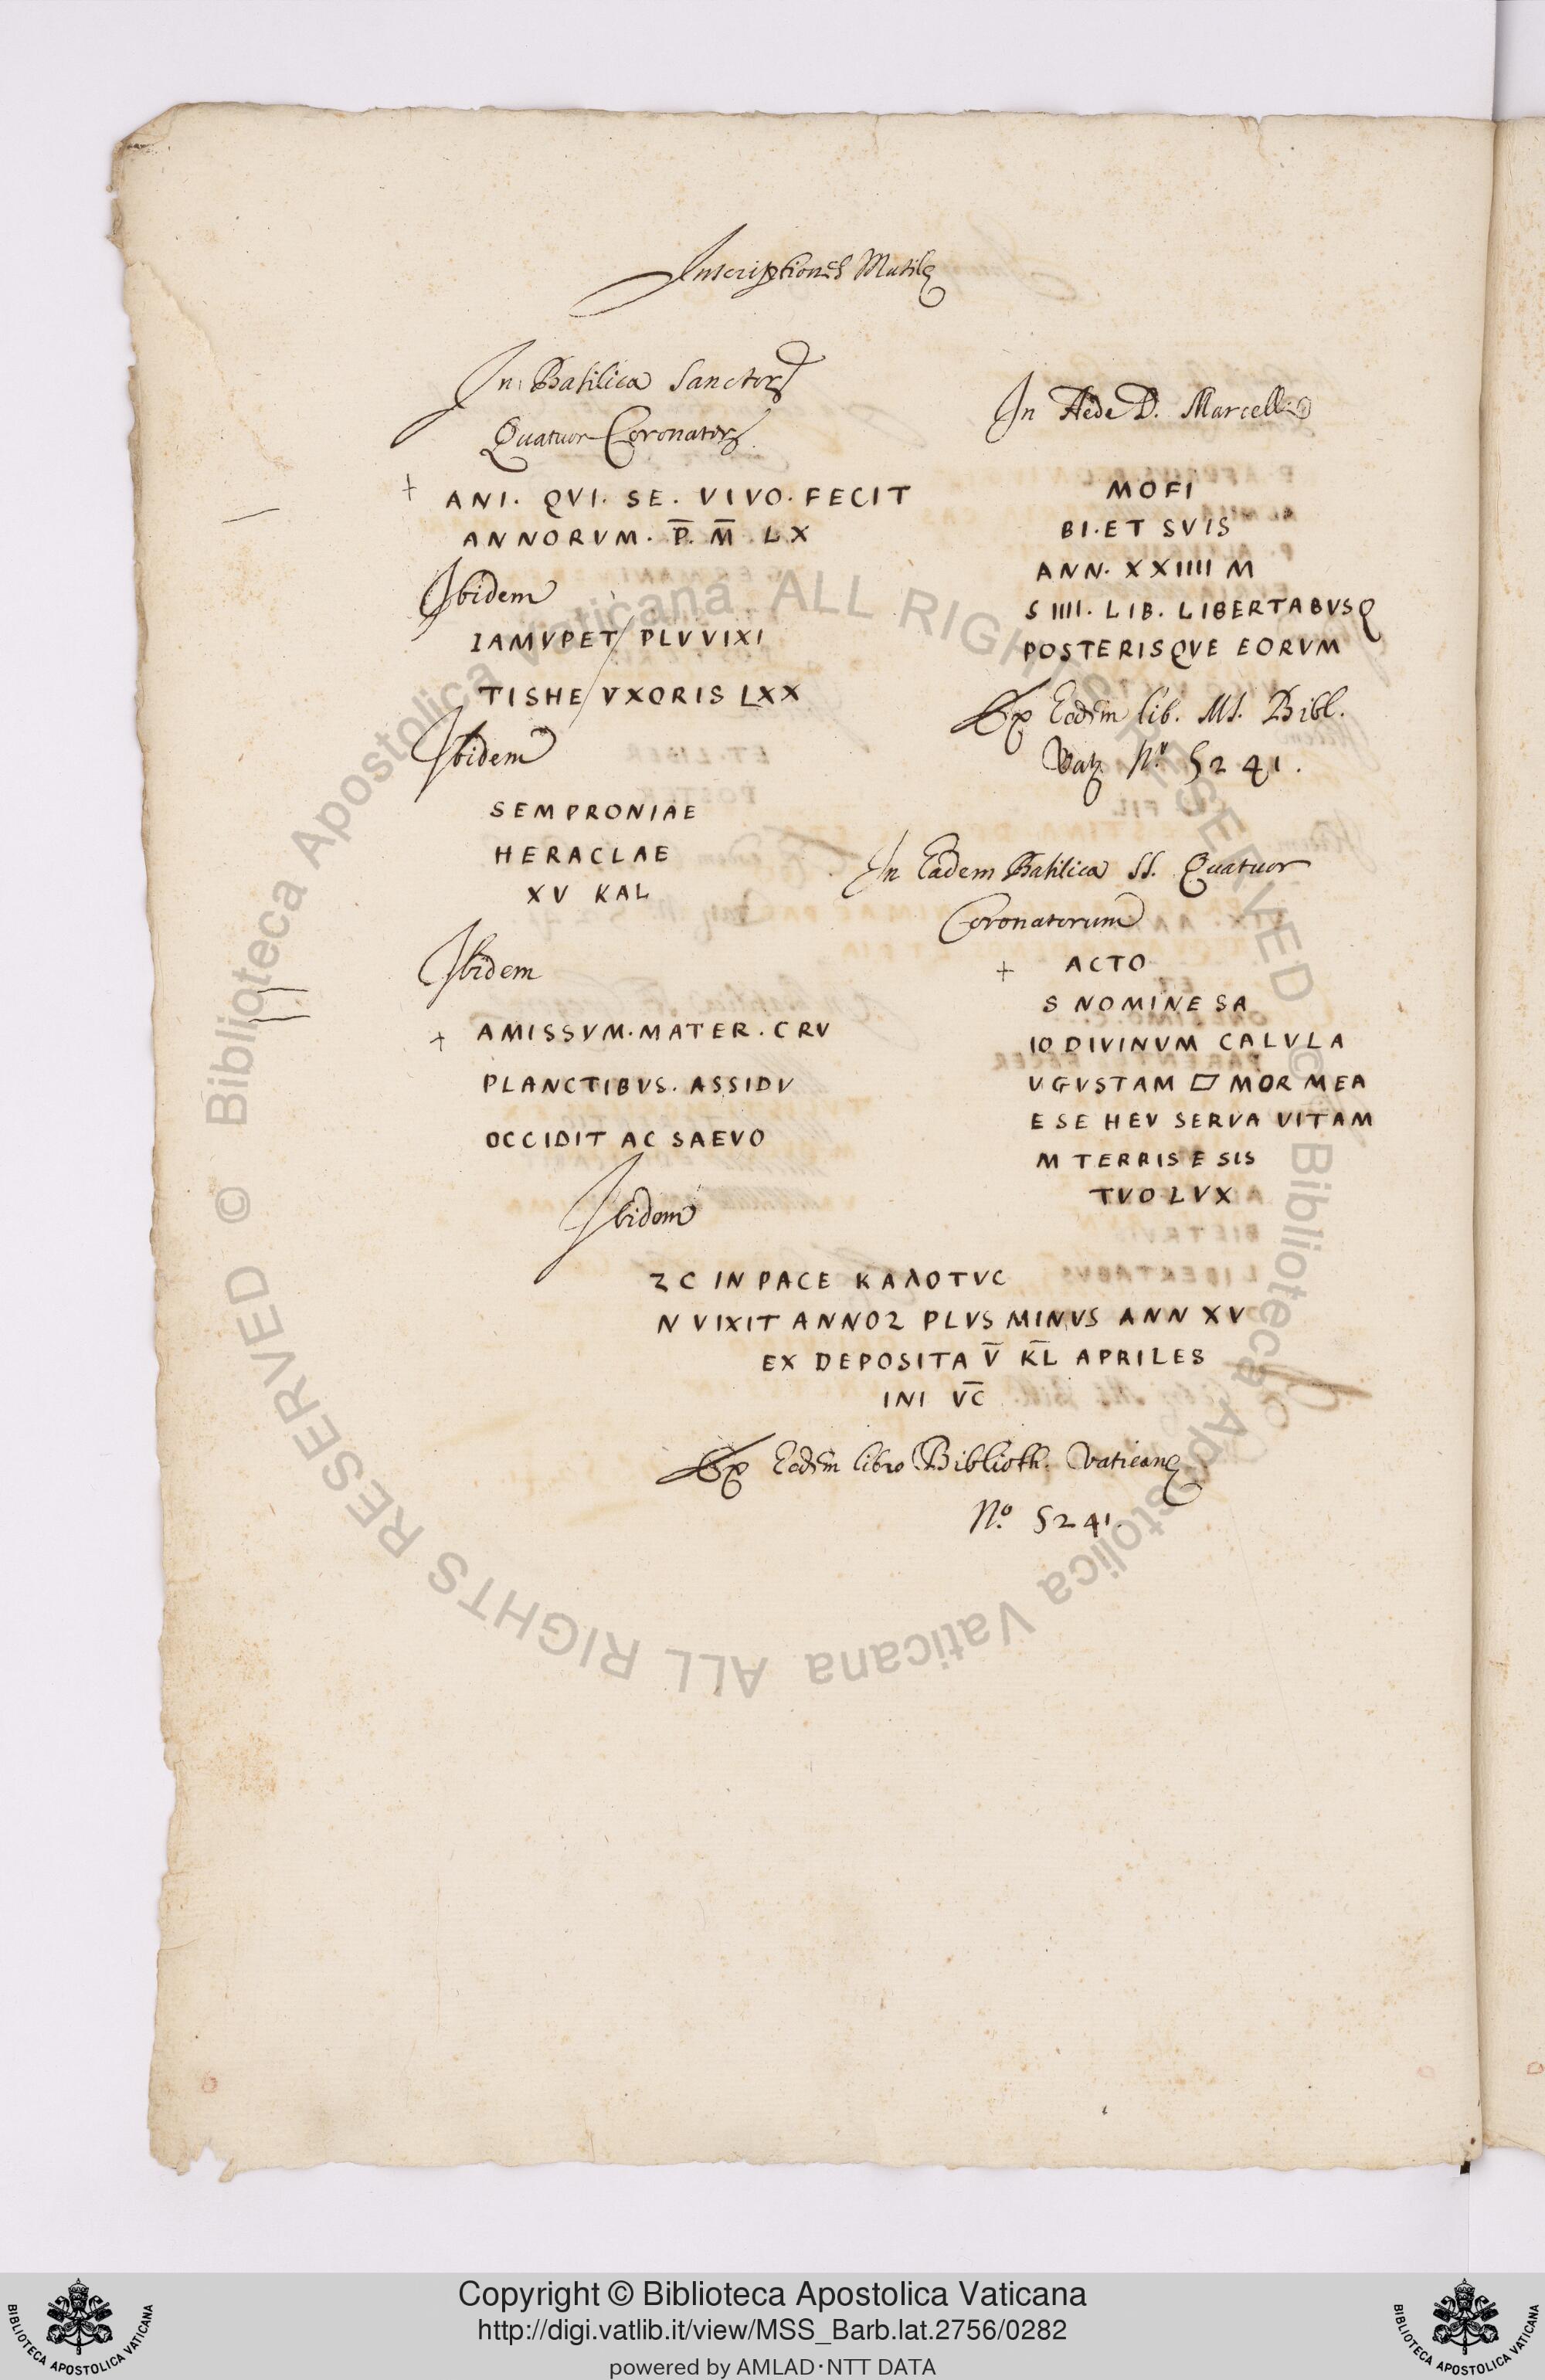 Inscriptiones Mutilę
In Basilica Sanctorꝝ
Quatuor Coronatorꝝ
+ ANI. QVI. SE. VIVO. FECIT
ANNORVM. P̅. M̅. LX
Ibidem
IAMVPET / PLVVIXI
TISHE / VXORIS LXX
Ibidem
SEMPRONIAE
HERACLAE
XV KAL
Ibidem
+ AMISSVM. MATER. CRV
PLANCTIBVS. ASSIDV
OCCIDIT AC SAEVO
In Aede D. Marcelli
MOFI
BI. ET SVIS
ANN. XXIIII M
S IIII. LIB. LIBERTABVSQ
POSTERISQVE EORVM
Ex Eodem lib. MS. Bibl.
Vat. N.º 5241.
In Eadem Basilica SS. Quatuor
Coronatorum
+ ACTO
S NOMINE SA
IO DIVINVM CALVLA
VGVSTAM ▱ MOR MEA
E SE HEV SERVA VITAM
M TERRIS E SIS
TVO LVX
Ibidem
Ꙁ C IN PACE KAΛOTVC
N VIXIT ANNOꙀ PLVS MINVS ANN XV
EX DEPOSITA V̅ K̅L APRILES
INI V̅C̅
Ex Eodem libro Biblioth. Vaticanę
N.º 5241.
© Biblioteca Apostolica Vaticana ALL RIGHTS RESERVED © Biblioteca Apostolica Vaticana ALL RIGHTS RESERVED
Copyright © Biblioteca Apostolica Vaticana
http://digi.vatlib.it/view/MSS_Barb.lat.2756/0282
powered by AMLAD·NTT DATA
BIBLIOTECA APOSTOLICA VATICANA
BIBLIOTECA APOSTOLICA VATICANA